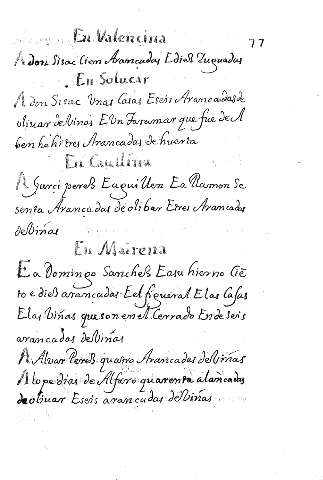 77
En Valencina
A don Sisac Cien Arançadas E dies Iuguadas
En Solucar
A don Sisac Unas Casas E seis Arancadas de
olivar de Vinas E Un Faramar que fue de A
ben hahi tres Arancadas de huerta
En Caullina
A Garci pereS E a guillen E a Ramon Se
senta Arançadas de olibar E tres Arancadas
de Viñas
En Mairena
E a Domingo SancheS E a su hierno Ciē
to e dieS arancadas E el figueral E las Casas
E las Viñas que son en el Cerrado En de seis
arancadas de Viñas
A Alvar PereS quatro Arancadas de Viñas
A lope dias de Alfaro quarenta alancadas
de olivar E seis arancadas de Viñas